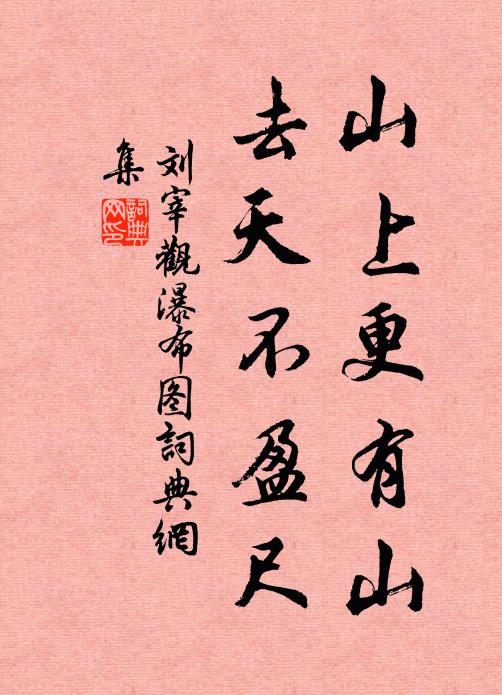 山上更有山
去天不盈尺
刘宰觀瀑布图詞典網
集
詞典网印